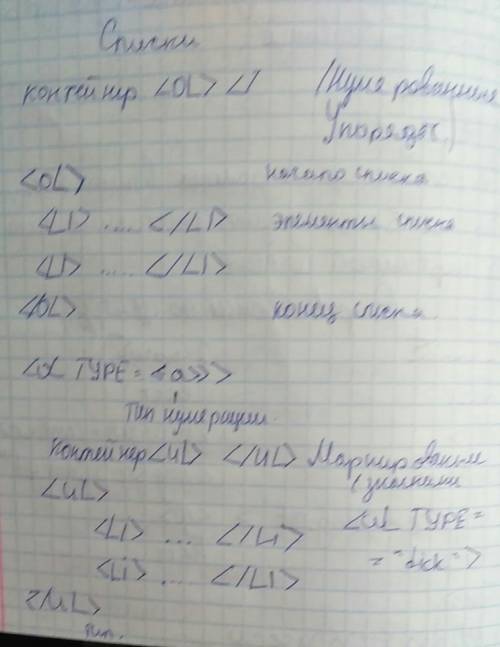 Списки
контейнер <OL> </ (Нумерованные
Упорядоч.)
<OL> начало списка
<LI> .... </LI> элементы списка
<LI> ..... </LI>
</OL> конец списка
<OL TYPE = «a»>
тип нумерации.
контейнер <UL> </UL> Маркированные
(значками
<UL>
<UL TYPE =
<Li> ... </Li>
= " ">
<Li> ... </LI>
</UL>